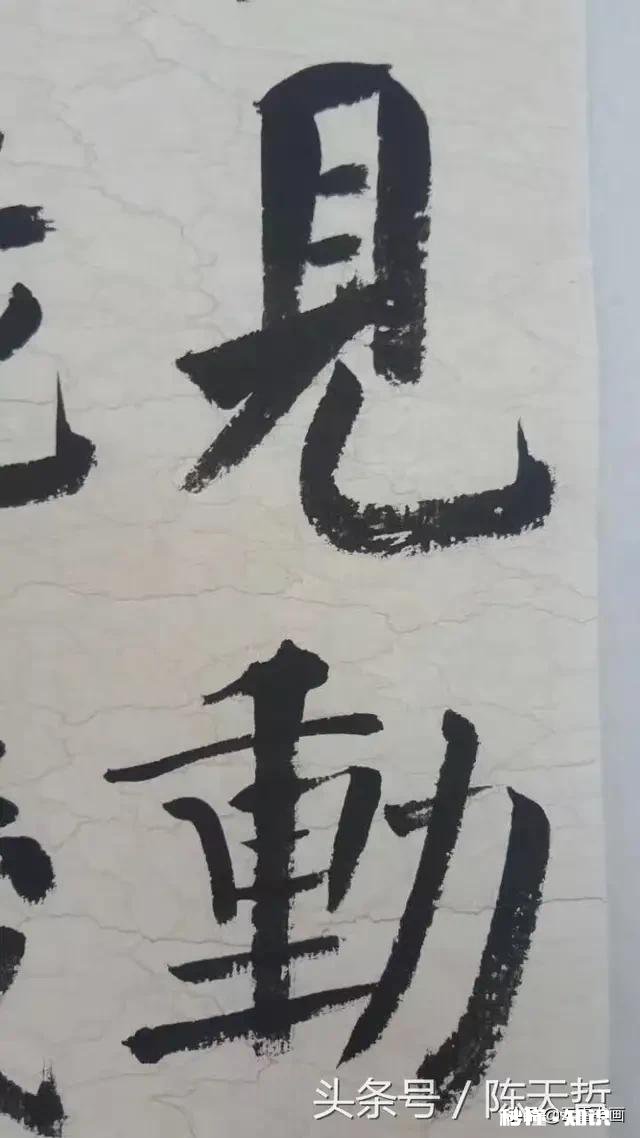 見動
头条号 / 陈天哲